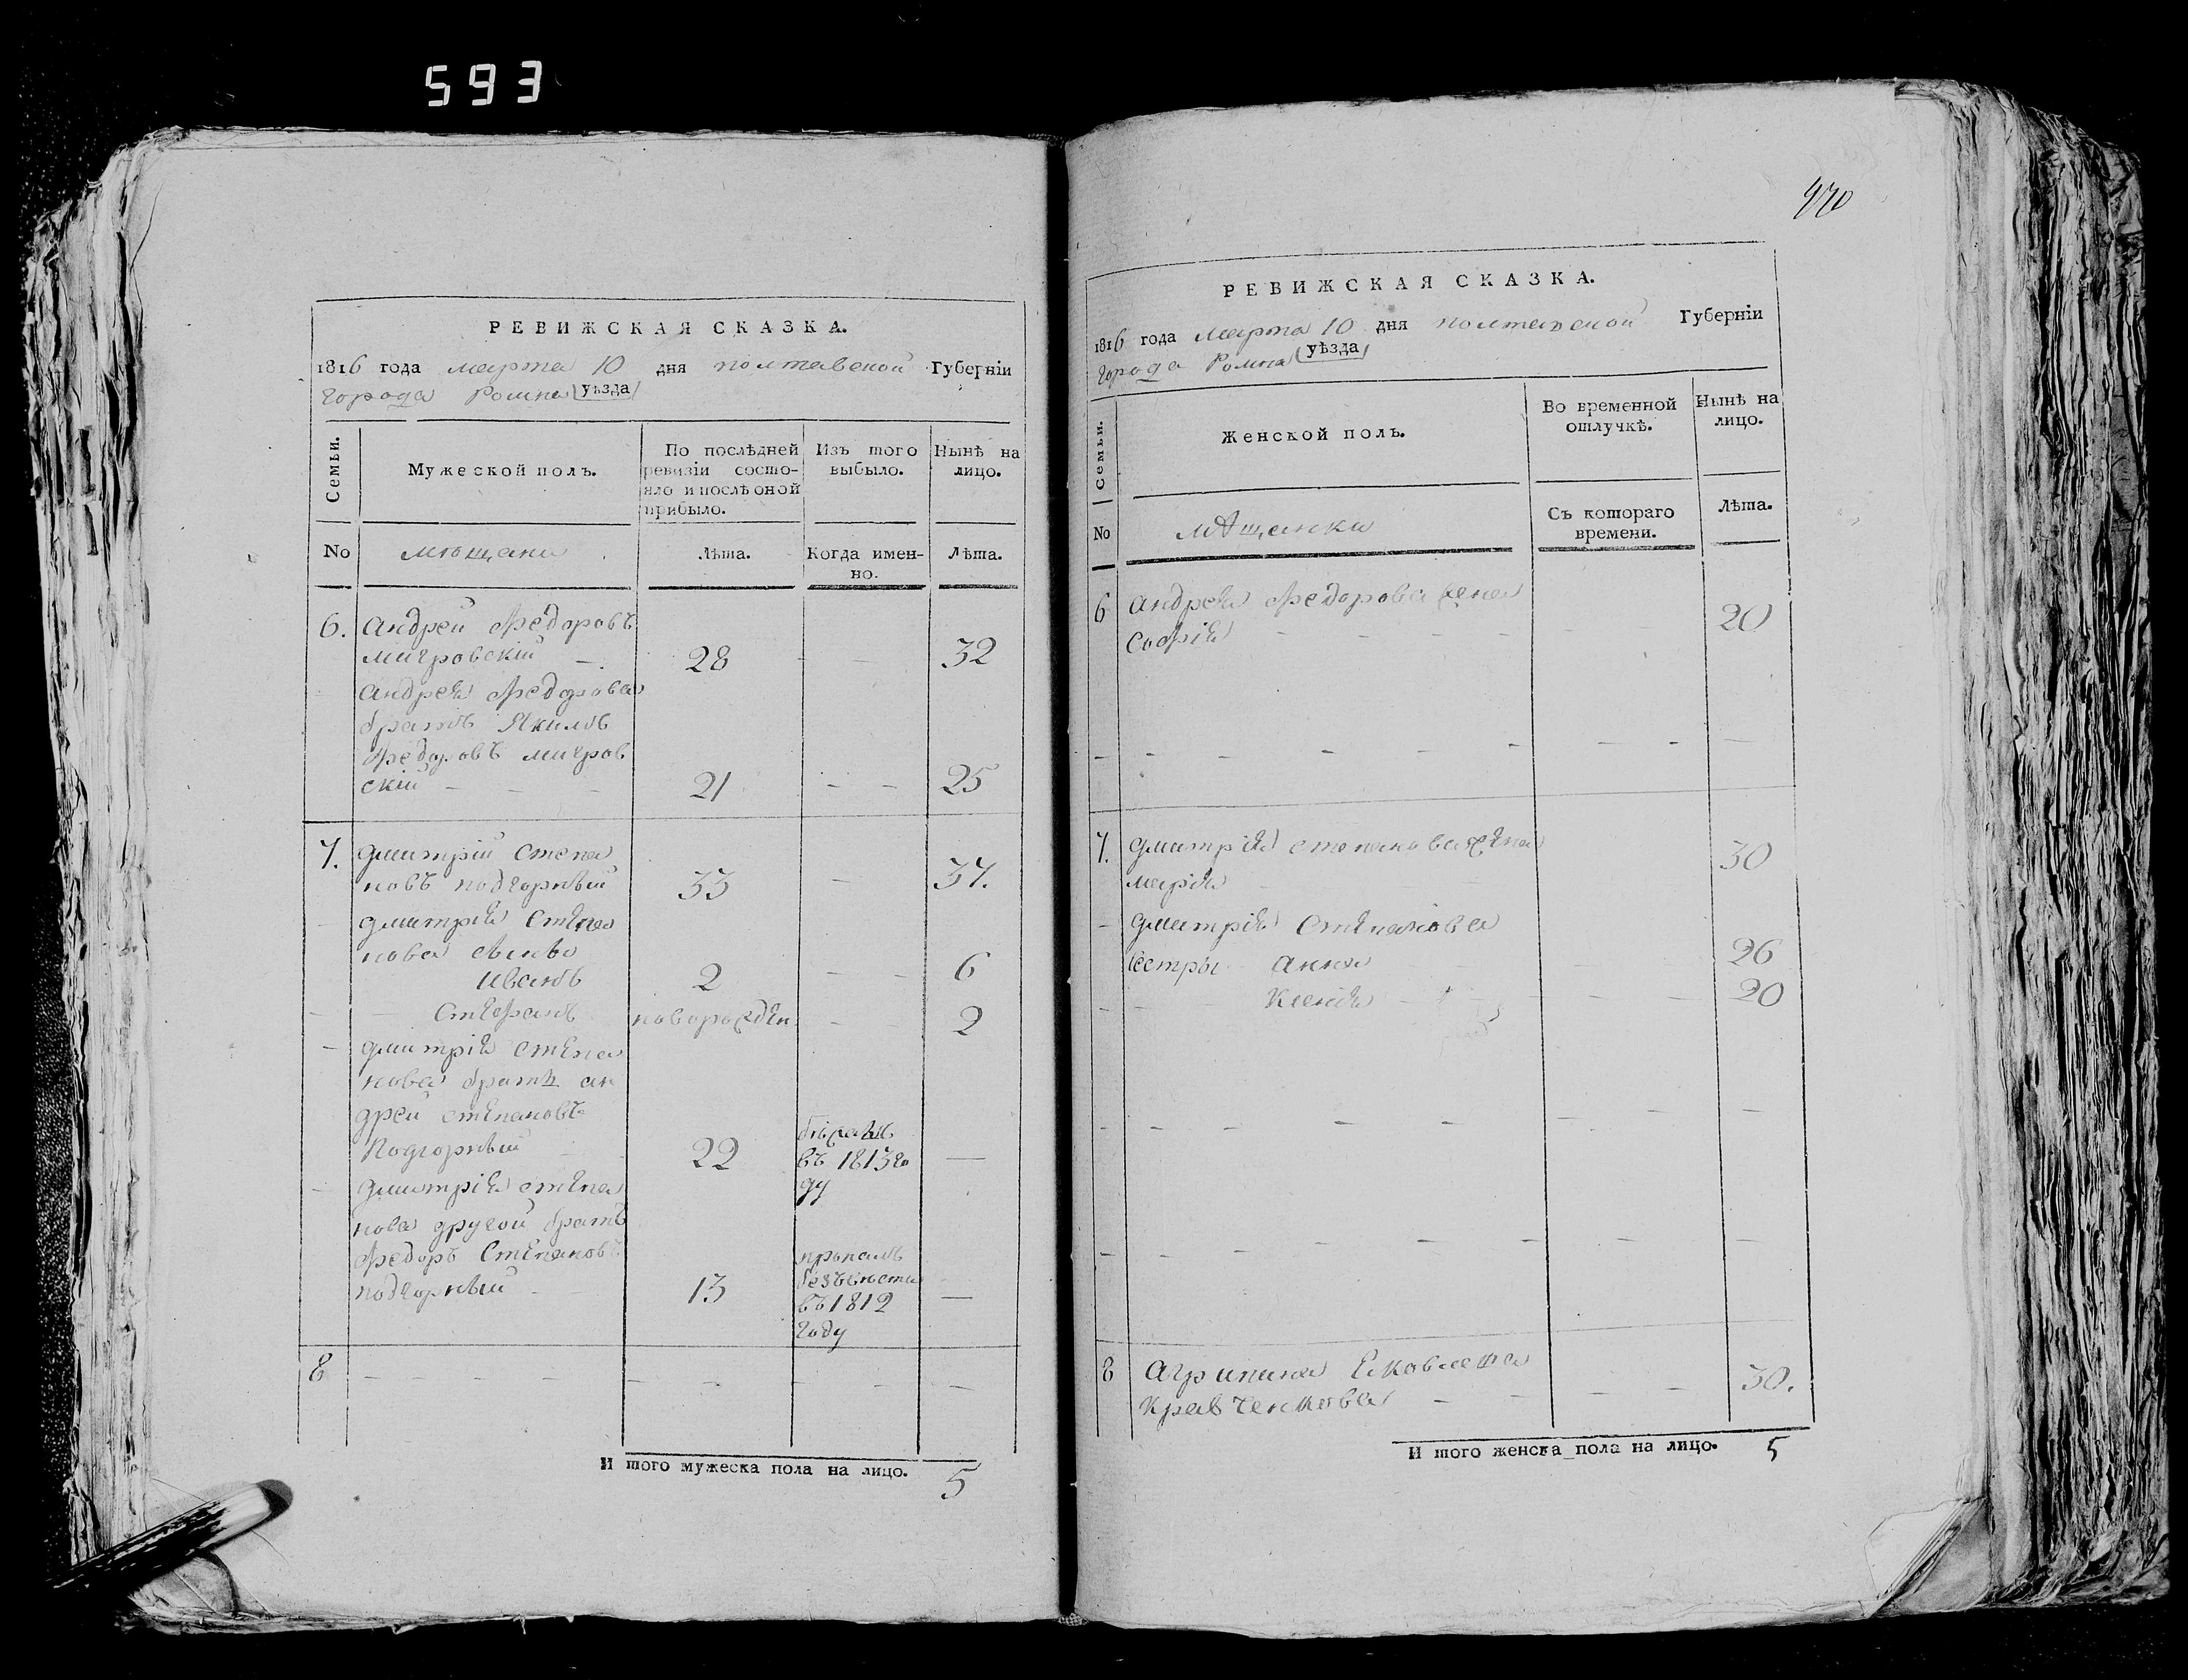 593
РЕВИЖСКАЯ СКАЗКА.
1816 года марта 10 дня полтавской Губерніи
города Ромна уѣзда
Семьи.
Мужеской полъ.
По послѣдней
ревизіи состо-
яло и послѣ оной
прибыло.
Изъ того
выбыло.
Нынѣ на
лицо.
No
мѣщани
Лѣта.
Когда имен-
но.
Лѣта.
6. Андрей Федоровъ
мигровскій 28 32
Андрея Федорова
братъ Якимъ
Федоровъ мигров
скій 21 25
7. Дмитрій Степа
новъ подгорный 33 37.
Дмитрія Степа
нова
Иванъ 2 6
Стефанъ новорожден 2
Дмитрія Степа
нова братъ Ан
дрей Степановъ
Подгорный 22 — 
въ 1813 го
ду
Дмитрія Степа
нова другой братъ
Федоръ Степановъ
подгорный 13 —
пропалъ
безъ вѣсти
въ 1812
году
8
И того мужеска пола на лицо. 5
470
РЕВИЖСКАЯ СКАЗКА.
1816 года марта 10 дня полтавской Губерніи
города Ромна уѣзда
Семьи.
Женской полъ.
Во временной
отлучкѣ.
Нынѣ на
лицо.
No
мѣщанки
Съ котораго
времени.
Лѣта.
6 Андрея Федорова жена
Софія 20
7. Дмитрія Степанова жена 30
марія
Дмитрія Степанова
сестры Анна 26
Ксенія 20
8 Агрипина Яковлева 30.
Кравченкова
И того женска пола на лицо. 5